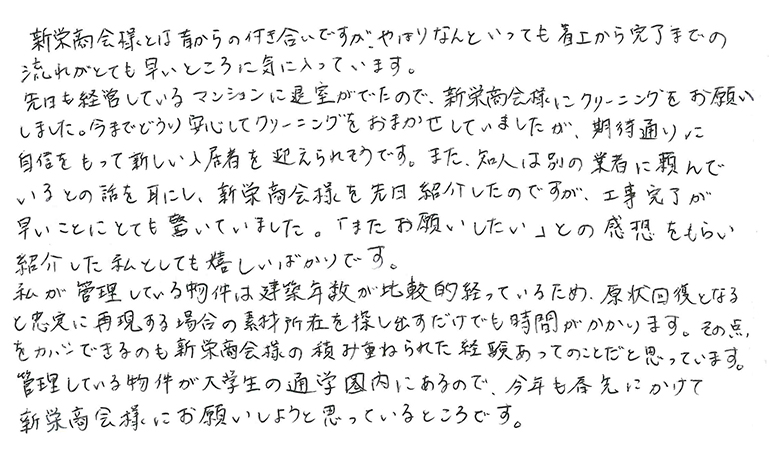 新栄商会様とは昔からの付き合いですが、やはりなんといっても着工から完了までの
流れがとても早いところに気に入っています。
先日も経営しているマンションに退室がでたので、新栄商会様にクリーニングをお願い
しました。今までどうり安心してクリーニングをおまかせしていましたが、期待通りに
自信をもって新しい入居者を迎えられそうです。また、知人は別の業者に頼んで
いるとの話を耳にし、新栄商会様を先日紹介したのですが、工事完了が
早いことにとても驚いていました。「またお願いしたい」との感想をもらい
紹介した私としても嬉しいばかりです。
私が管理している物件は建築年数が比較的経っているため、原状回復となる
と忠実に再現する場合の素材所在を探し出すだけでも時間がかかります。その点、
をカバーできるのも新栄商会様の積み重ねられた経験あってのことだと思っています。
管理している物件が大学生の通学圏内にあるので、今年も春先にかけて
新栄商会様にお願いしようと思っているところです。